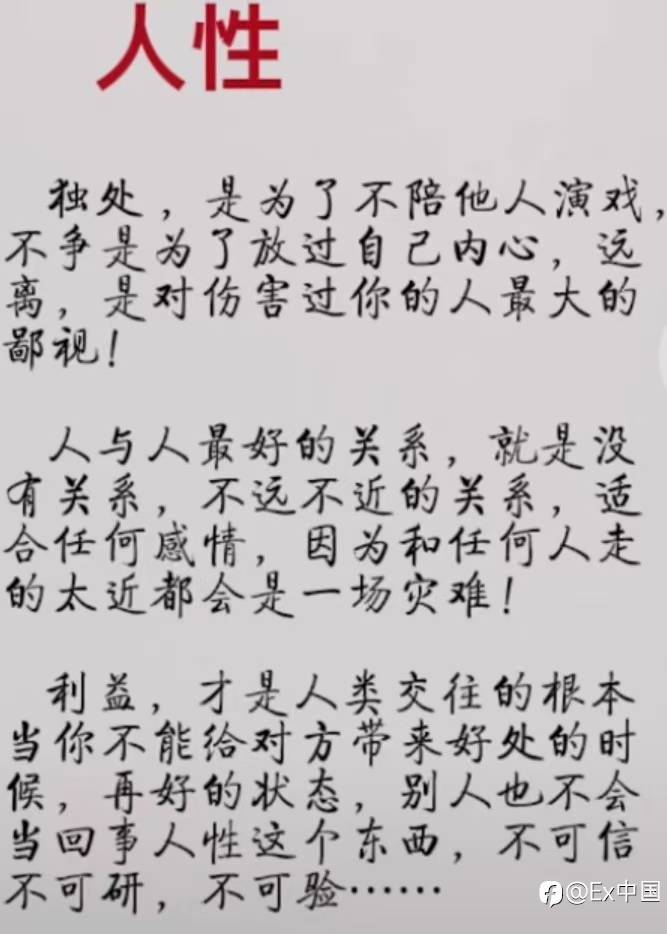 人性
独处，是为了不陪他人演戏，
不争是为了放过自己内心，远
离，是对伤害过你的人最大的
鄙视！
人与人最好的关系，就是没
有关系，不远不近的关系，适
合任何感情，因为和任何人走
的太近都会是一场灾难！
利益，才是人类交往的根本
当你不能给对方带来好处的时
候，再好的状态，别人也不会
当回事人性这个东西，不可信
不可研，不可验……
@Ex中国